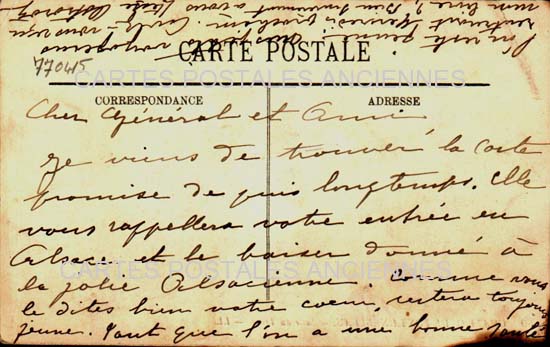 CARTE POSTALE
77045
CARTES POSTALES ANCIENNES
CORRESPONDANCE
ADRESSE
Cher Général et Ami
Je viens de trouver la carte
promise de puis longtemps. Elle
vous rappellera votre entrée en
Alsace et le baiser donné à
la jolie Alsacienne. Comme vous
CARTES POSTALES ANCIENNES
le dites bien votre coeur restera toujours
jeune. Tant que l'on a une bonne santé